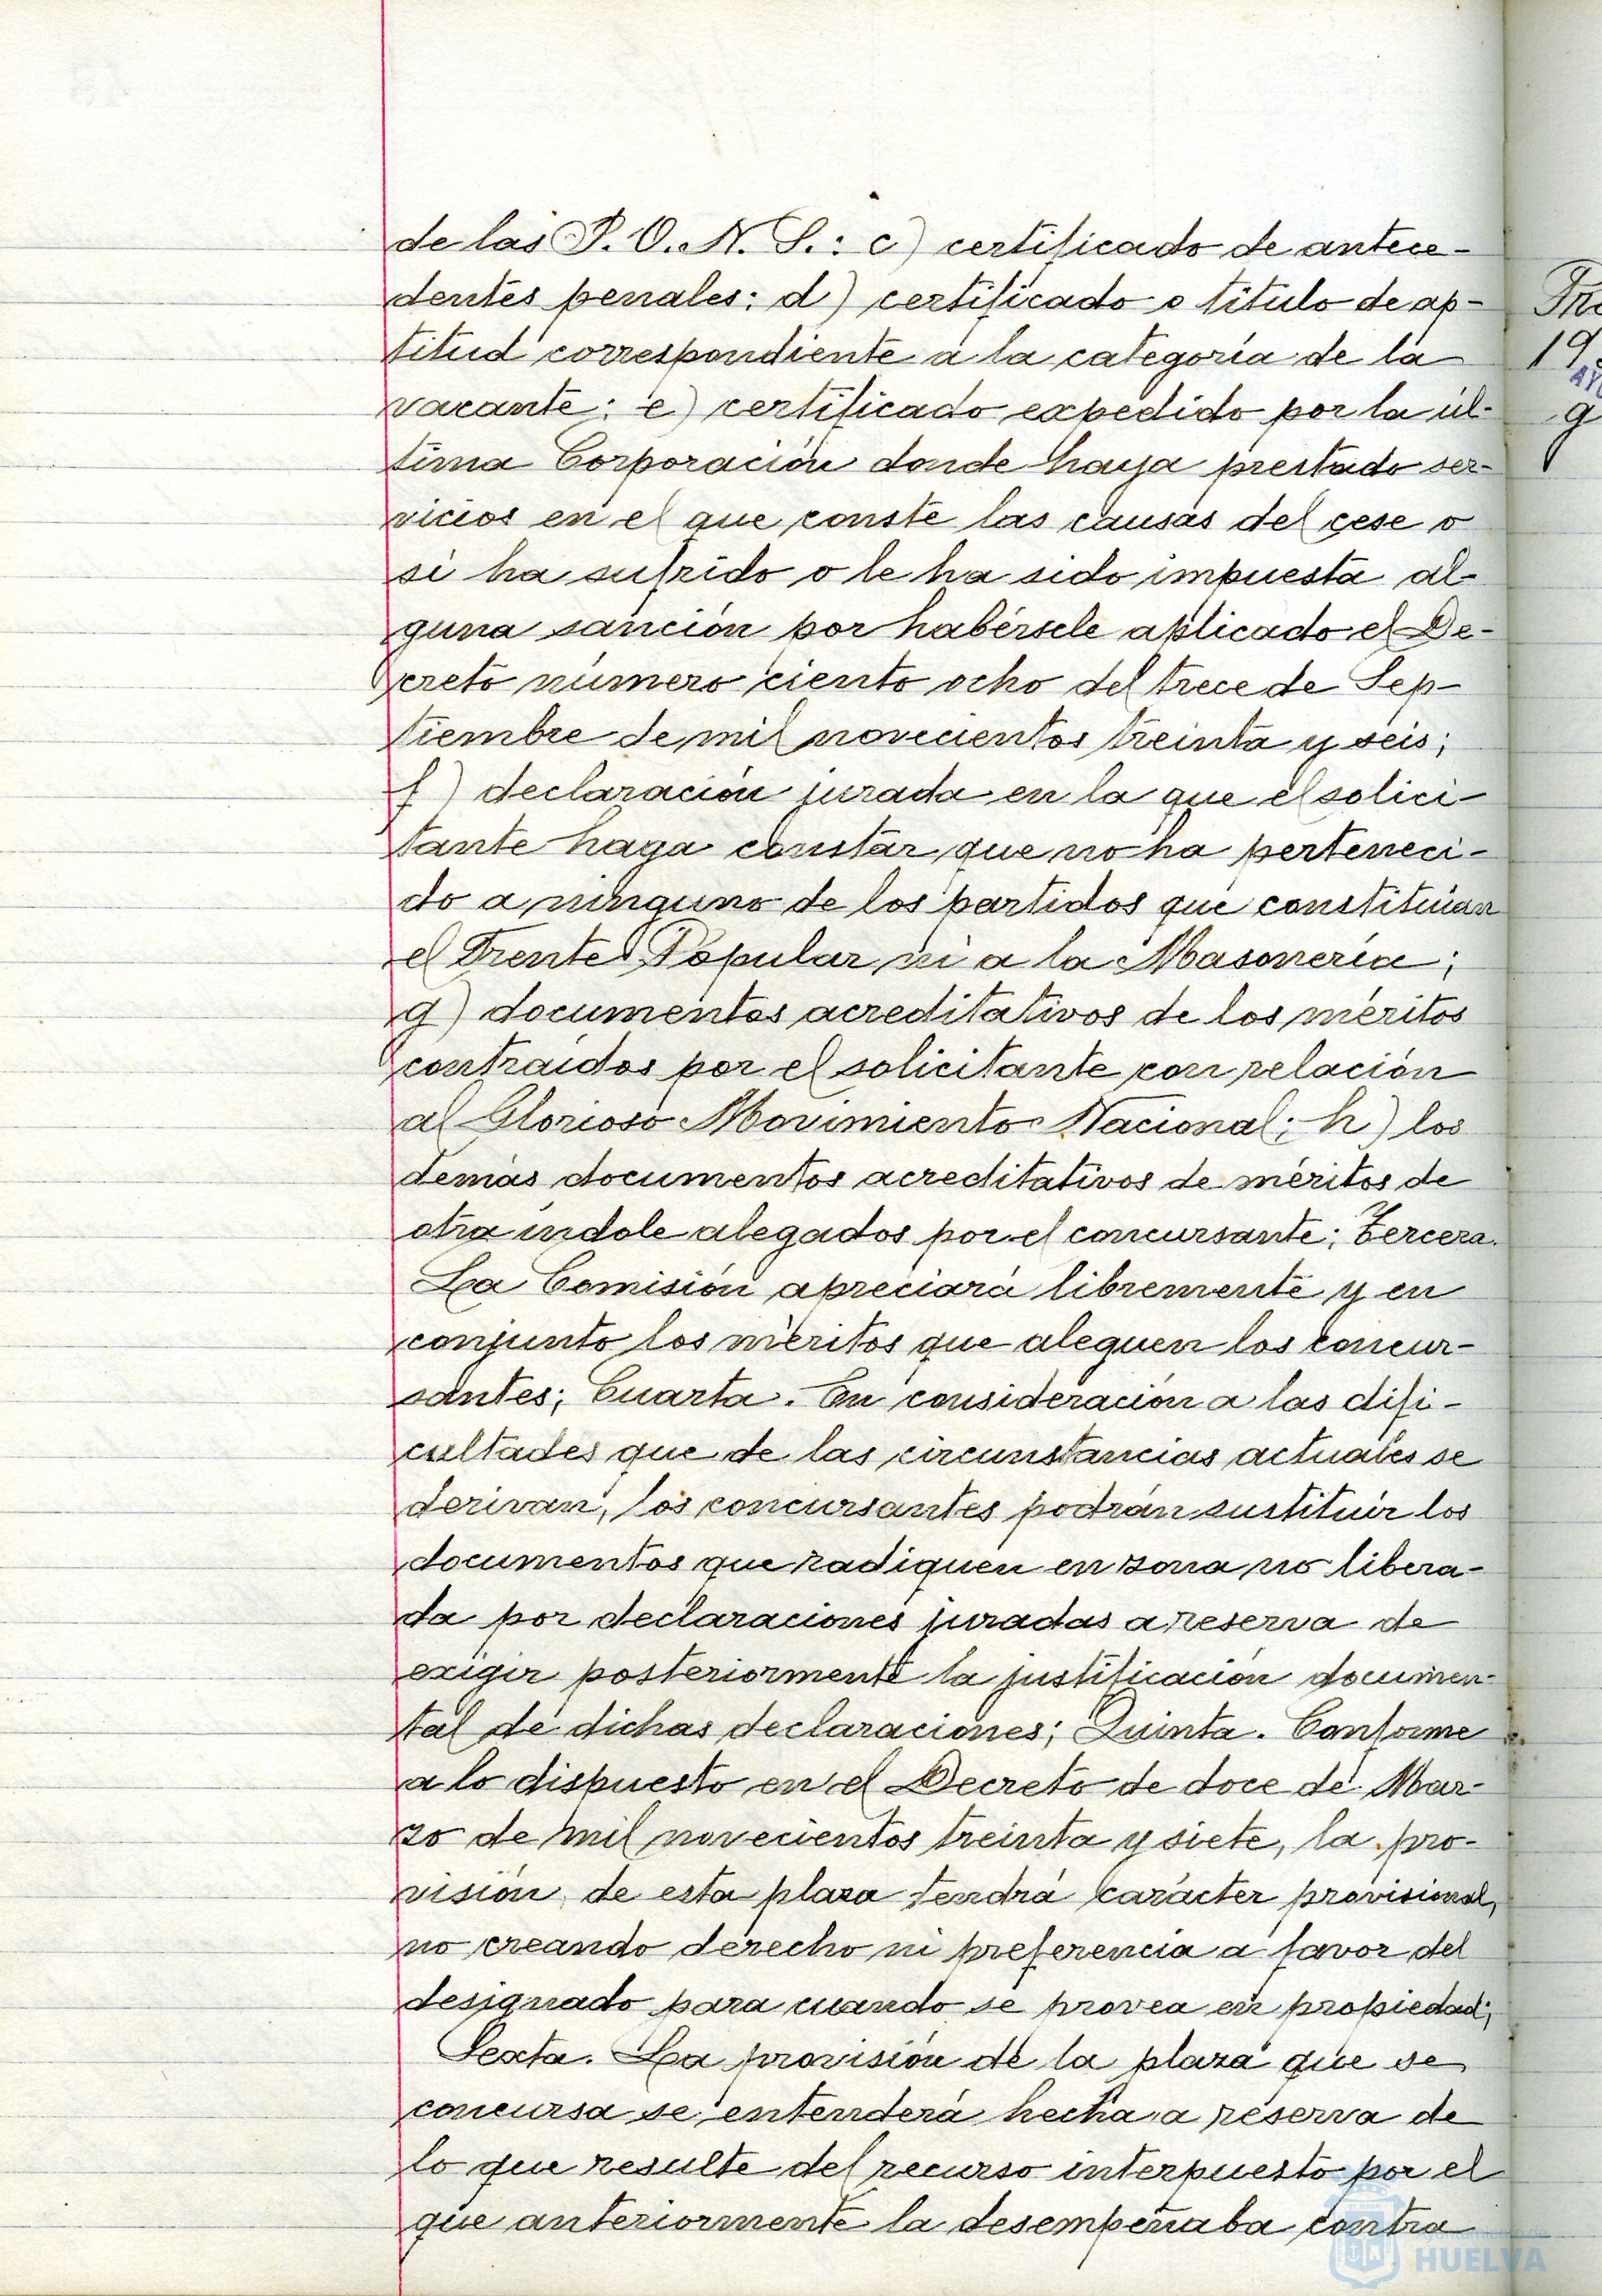 de las J. O. N. S.: c) certificado de antece-
dentes penales; d) certificado o título de ap-
titud correspondiente a la categoría de la
vacante; e) certificado expedido por la úl-
tima Corporación donde haya prestado ser-
vicios en el que conste las causas del cese o
si ha sufrido o le ha sido impuesta al-
guna sanción por habérsele aplicado el De-
creto número ciento ocho del trece de Sep-
tiembre de mil novecientos treinta y seis;
f) declaración jurada en la que el solici-
tante haga constar que no ha perteneci-
do a ninguno de los partidos que constituían
el Frente Popular ni a la Masonería;
g) documentos acreditativos de los méritos
contraídos por el solicitante con relación
al Glorioso Movimiento Nacional; h) los
demás documentos acreditativos de méritos de
otra índole alegados por el concursante; Tercera.
La Comisión apreciará libremente y en
conjunto los méritos que aleguen los concur-
santes; Cuarta. En consideración a las difi-
cultades que de las circunstancias actuales se
derivan, los concursantes podrán sustituir los
documentos que radiquen en zona no libera-
da por declaraciones juradas a reserva de
exigir posteriormente la justificación documen-
tal de dichas declaraciones; Quinta. Conforme
a lo dispuesto en el Decreto de doce de Mar-
zo de mil novecientos treinta y siete, la pro-
visión de esta plaza tendrá carácter provisional,
no creando derecho ni preferencia a favor del
designado para cuando se provea en propiedad;
Sexta. La provisión de la plaza que se
concursa se entenderá hecha a reserva de
lo que resulte del recurso interpuesto por el
que anteriormente la desempeñaba contra
HUELVA
19
g